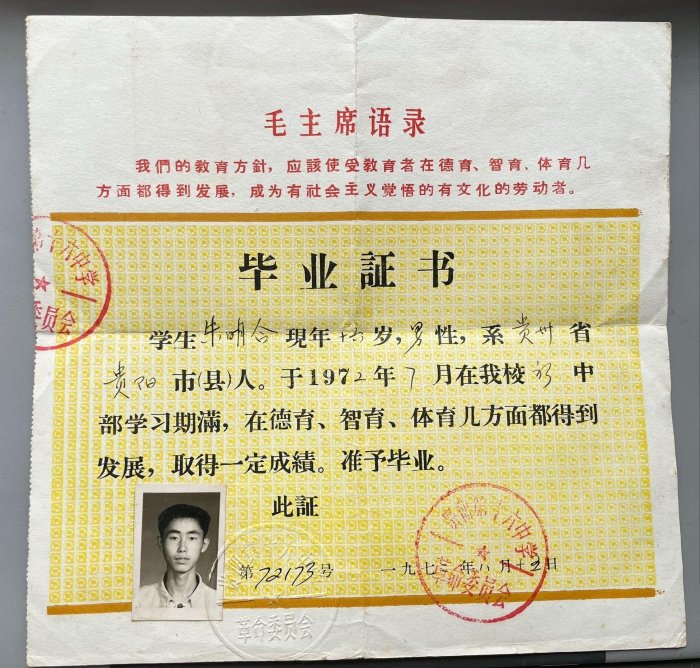 毛主席语录
我們的教育方針，应該使受教育者在德育、智育、体育几
方面都得到发展，成为有社会主义觉悟的有文化的劳动者。
毕业証书
学生朱明合現年 岁，男性，系贵州省
贵阳市(县)人。于1972年7月在我校初中
部学习期滿，在德育、智育、体育几方面都得到
发展，取得一定成績。准予毕业。
此証
第72173号
一九七 年八月十二日
第十六中学
革命委员会
委员会
革命委员会